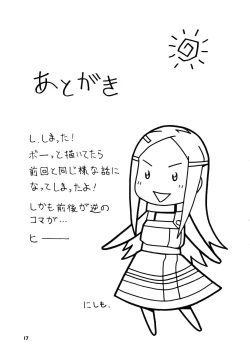 あとがき
し、しまった!
ボーッと描いてたら
前回と同じ様な話に
なってしまったよ!
しかも前後が逆の
コマが…
ヒ———
にしも.
17